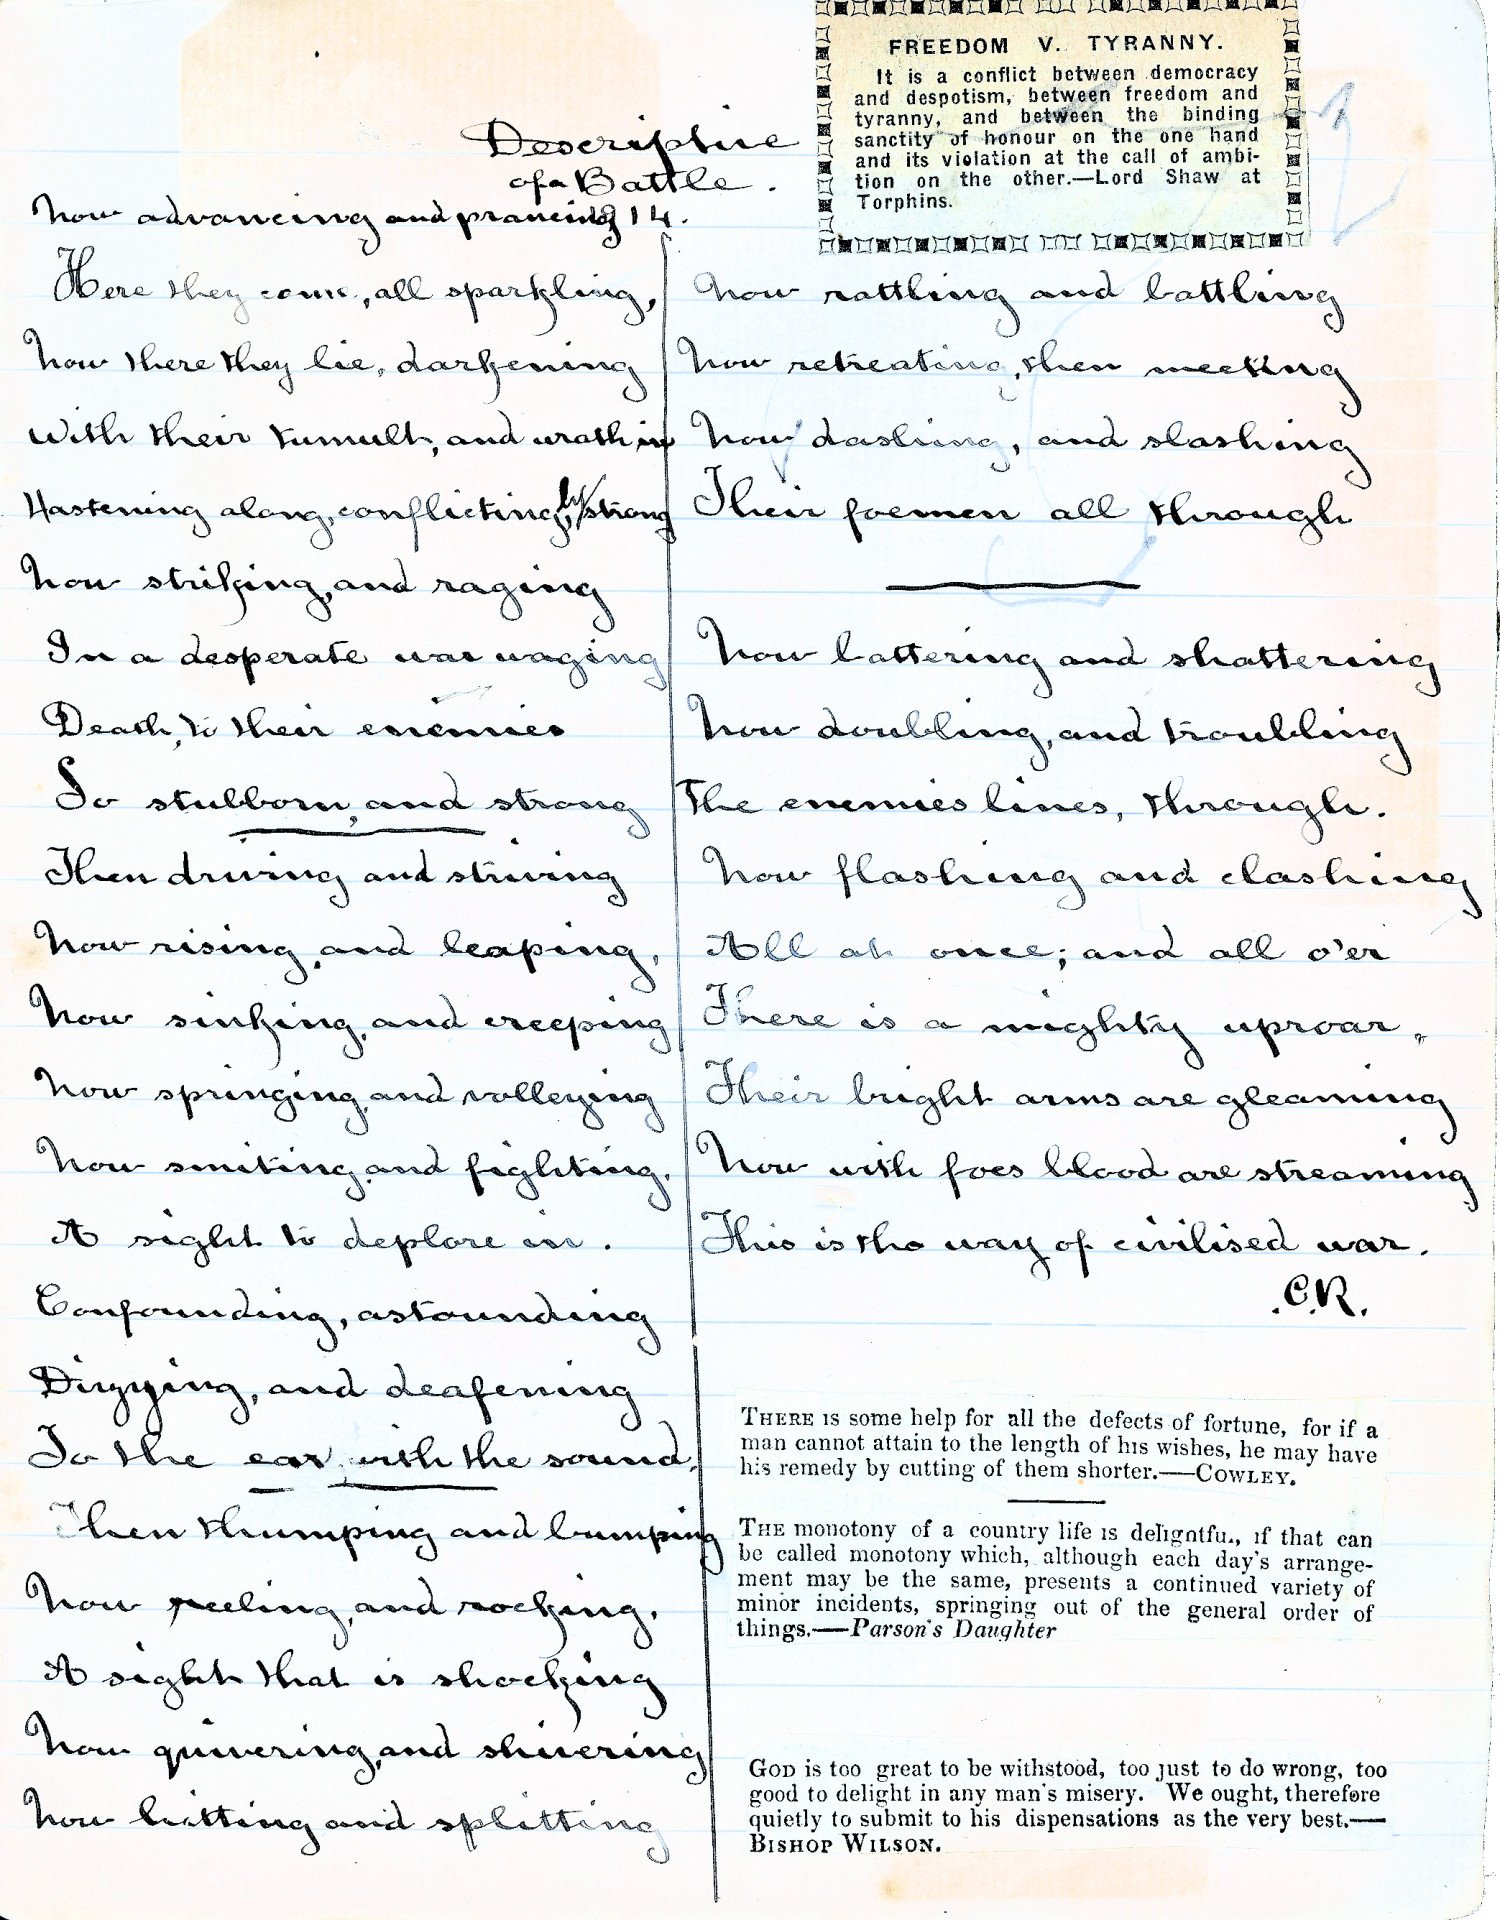 FREEDOM V. TYRANNY.
It is a conflict between democracy
and despotism, between freedom and
tyranny, and between the binding
sanctity of honour on the one hand
and its violation at the call of ambi-
tion on the other.—Lord Shaw at
Torphins.
2
Descriptive
of a Battle.
Now advancing and prancing 14.
Here they come, all sparkling,
Now there they lie, darkening
With their tumult, and wrath in
Hastening along, conflictingly strong
Now striking, and raging
In a desperate war waging
Death, to their enemies
So stubborn, and strong
Then driving and striving
Now rising, and leaping,
Now sinking, and creeping
Now springing, and volleying
Now smiting, and fighting,
A sight to deplore in.
Confounding, astounding
Dizzying, and deafening
To the ear, with the sound,
Then thumping and bumping
Now reeling, and rocking,
A sight that is shocking
Now quivering, and shivering
Now hitting and splitting
Now rattling and battling
Now retreating, then meeting
Now dashing, and slashing
Their foemen all through
Now battering and shattering
Now doubling, and troubling
The enemies lines, through.
Now flashing and clashing
All at once; and all o'er
There is a mighty uproar,
Their bright arms are gleaming
Now with foes blood are streaming
This is the way of civilised war.
.C.R.
THERE is some help for all the defects of fortune, for if a
man cannot attain to the length of his wishes, he may have
his remedy by cutting of them shorter.—COWLEY.
THE monotony of a country life is delightful, if that can
be called monotony which, although each day's arrange-
ment may be the same, presents a continued variety of
minor incidents, springing out of the general order of
things.—Parson's Daughter
GOD is too great to be withstood, too just to do wrong, too
good to delight in any man's misery. We ought, therefore
quietly to submit to his dispensations as the very best.—
BISHOP WILSON.